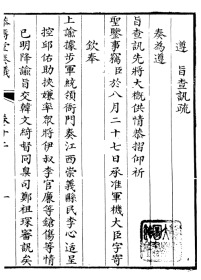 遵 旨查訊疏
奏為遵
旨查訊先將大概供情恭摺仰祈
聖鑒事竊臣於八月二十七日承准軍機大臣字寄
欽奉
上諭據步軍統領衙門奏江西崇義縣民李心適呈
控邱佑助挾嫌率眾將伊叔李官廉等鎗傷等情
已明降諭旨交韓文綺督同臬司鄭祖琛審訊矣